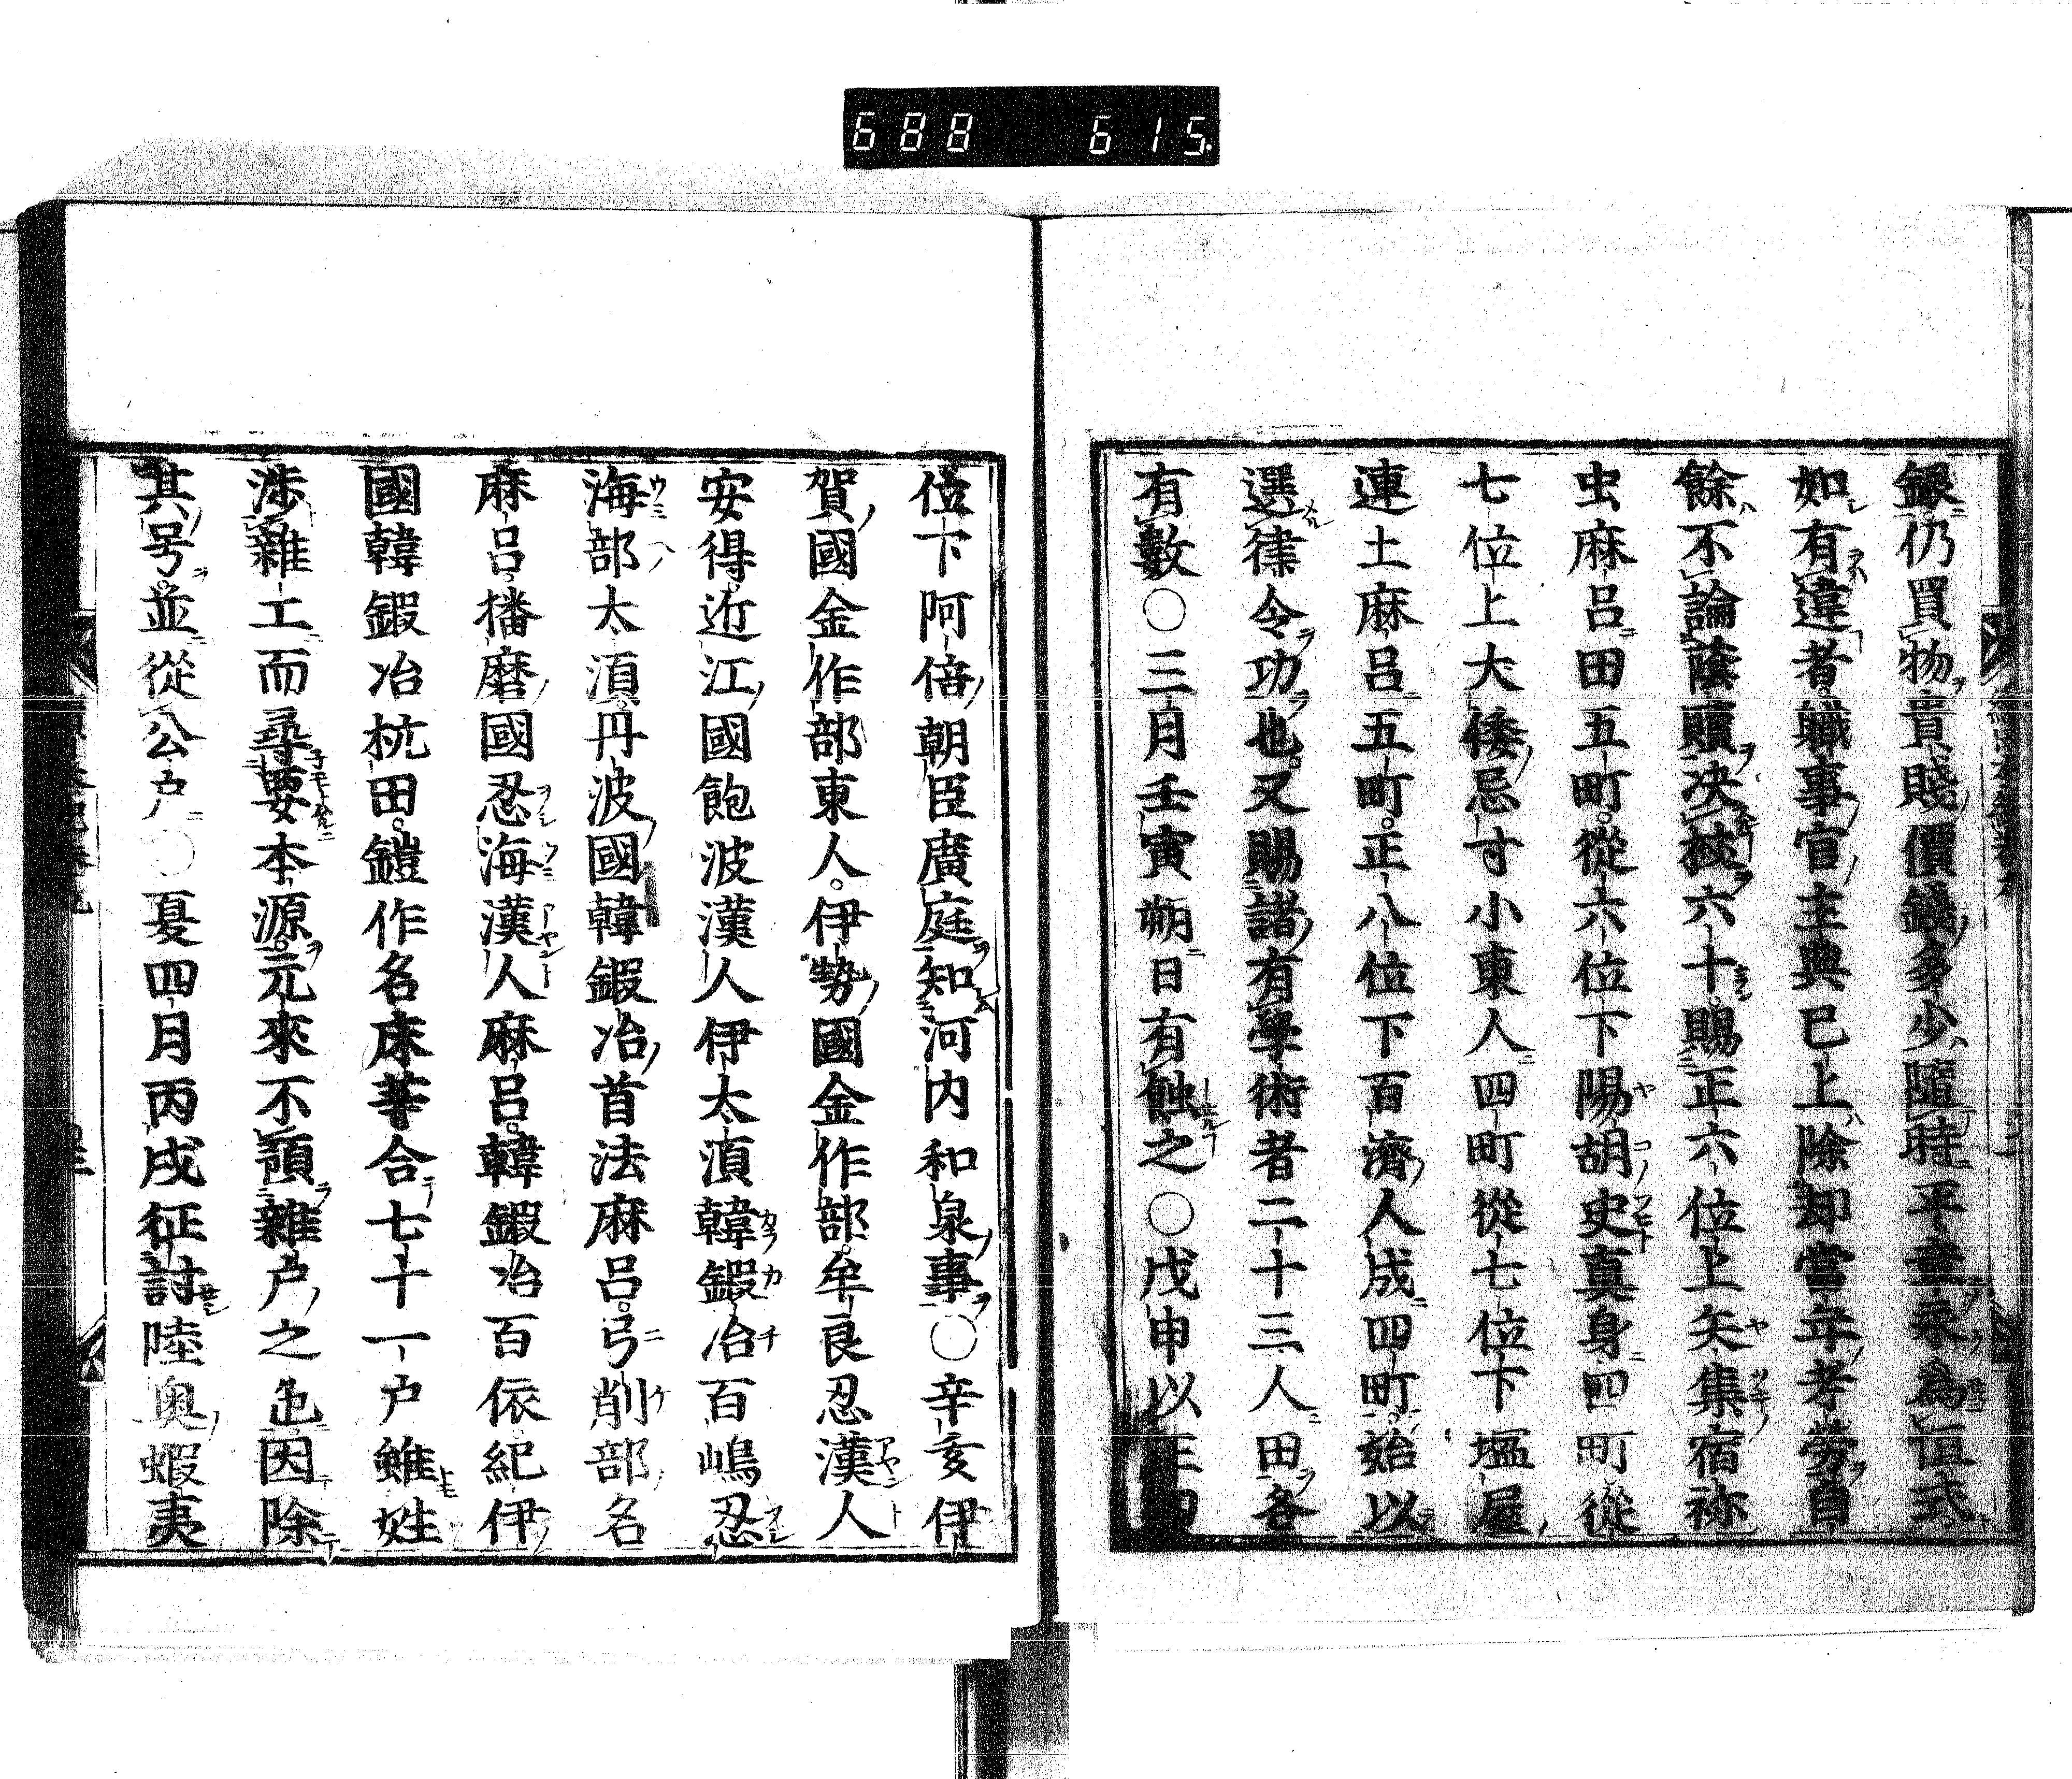 688 615
銀仍買物貴賤價錢多少隨時平章永為恒式
如有違者職事官主典已上除却當年考勞自
餘不論蔭贖决杖六十賜正六位上矢集宿祢
虫麻呂田五町從六位下陽胡史真身四町從
七位上大倭忌寸小東人四町從七位下塩屋
連土麻呂五町正八位下百濟人成四町始以
選律令功也又賜諸有學術者二十三人田各
有數〇三月壬寅朔日有蝕之〇戊申以正四
位下阿倍朝臣廣庭知河内和泉事〇辛亥伊
賀國金作部東人伊勢國金作部牟良忍漢人
安得近江國飽波漢人伊太須韓鍛冶百嶋忍
海部太須丹波國韓鍛冶首法麻呂弓削部名
麻呂播磨國忍海漢人麻呂韓鍛冶百依紀伊
國韓鍛冶杭田鎧作名床等合七十一戸雖姓
渉雜工而尋要本源元來不預雜戸之色因除
其号並從公戸〇夏四月丙戌征討陸奥蝦夷